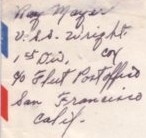 Ray Mayer
U.S.S. Wright
1st Div. Cox
c/o Fleet Postoffice
San Francisco
Calif.